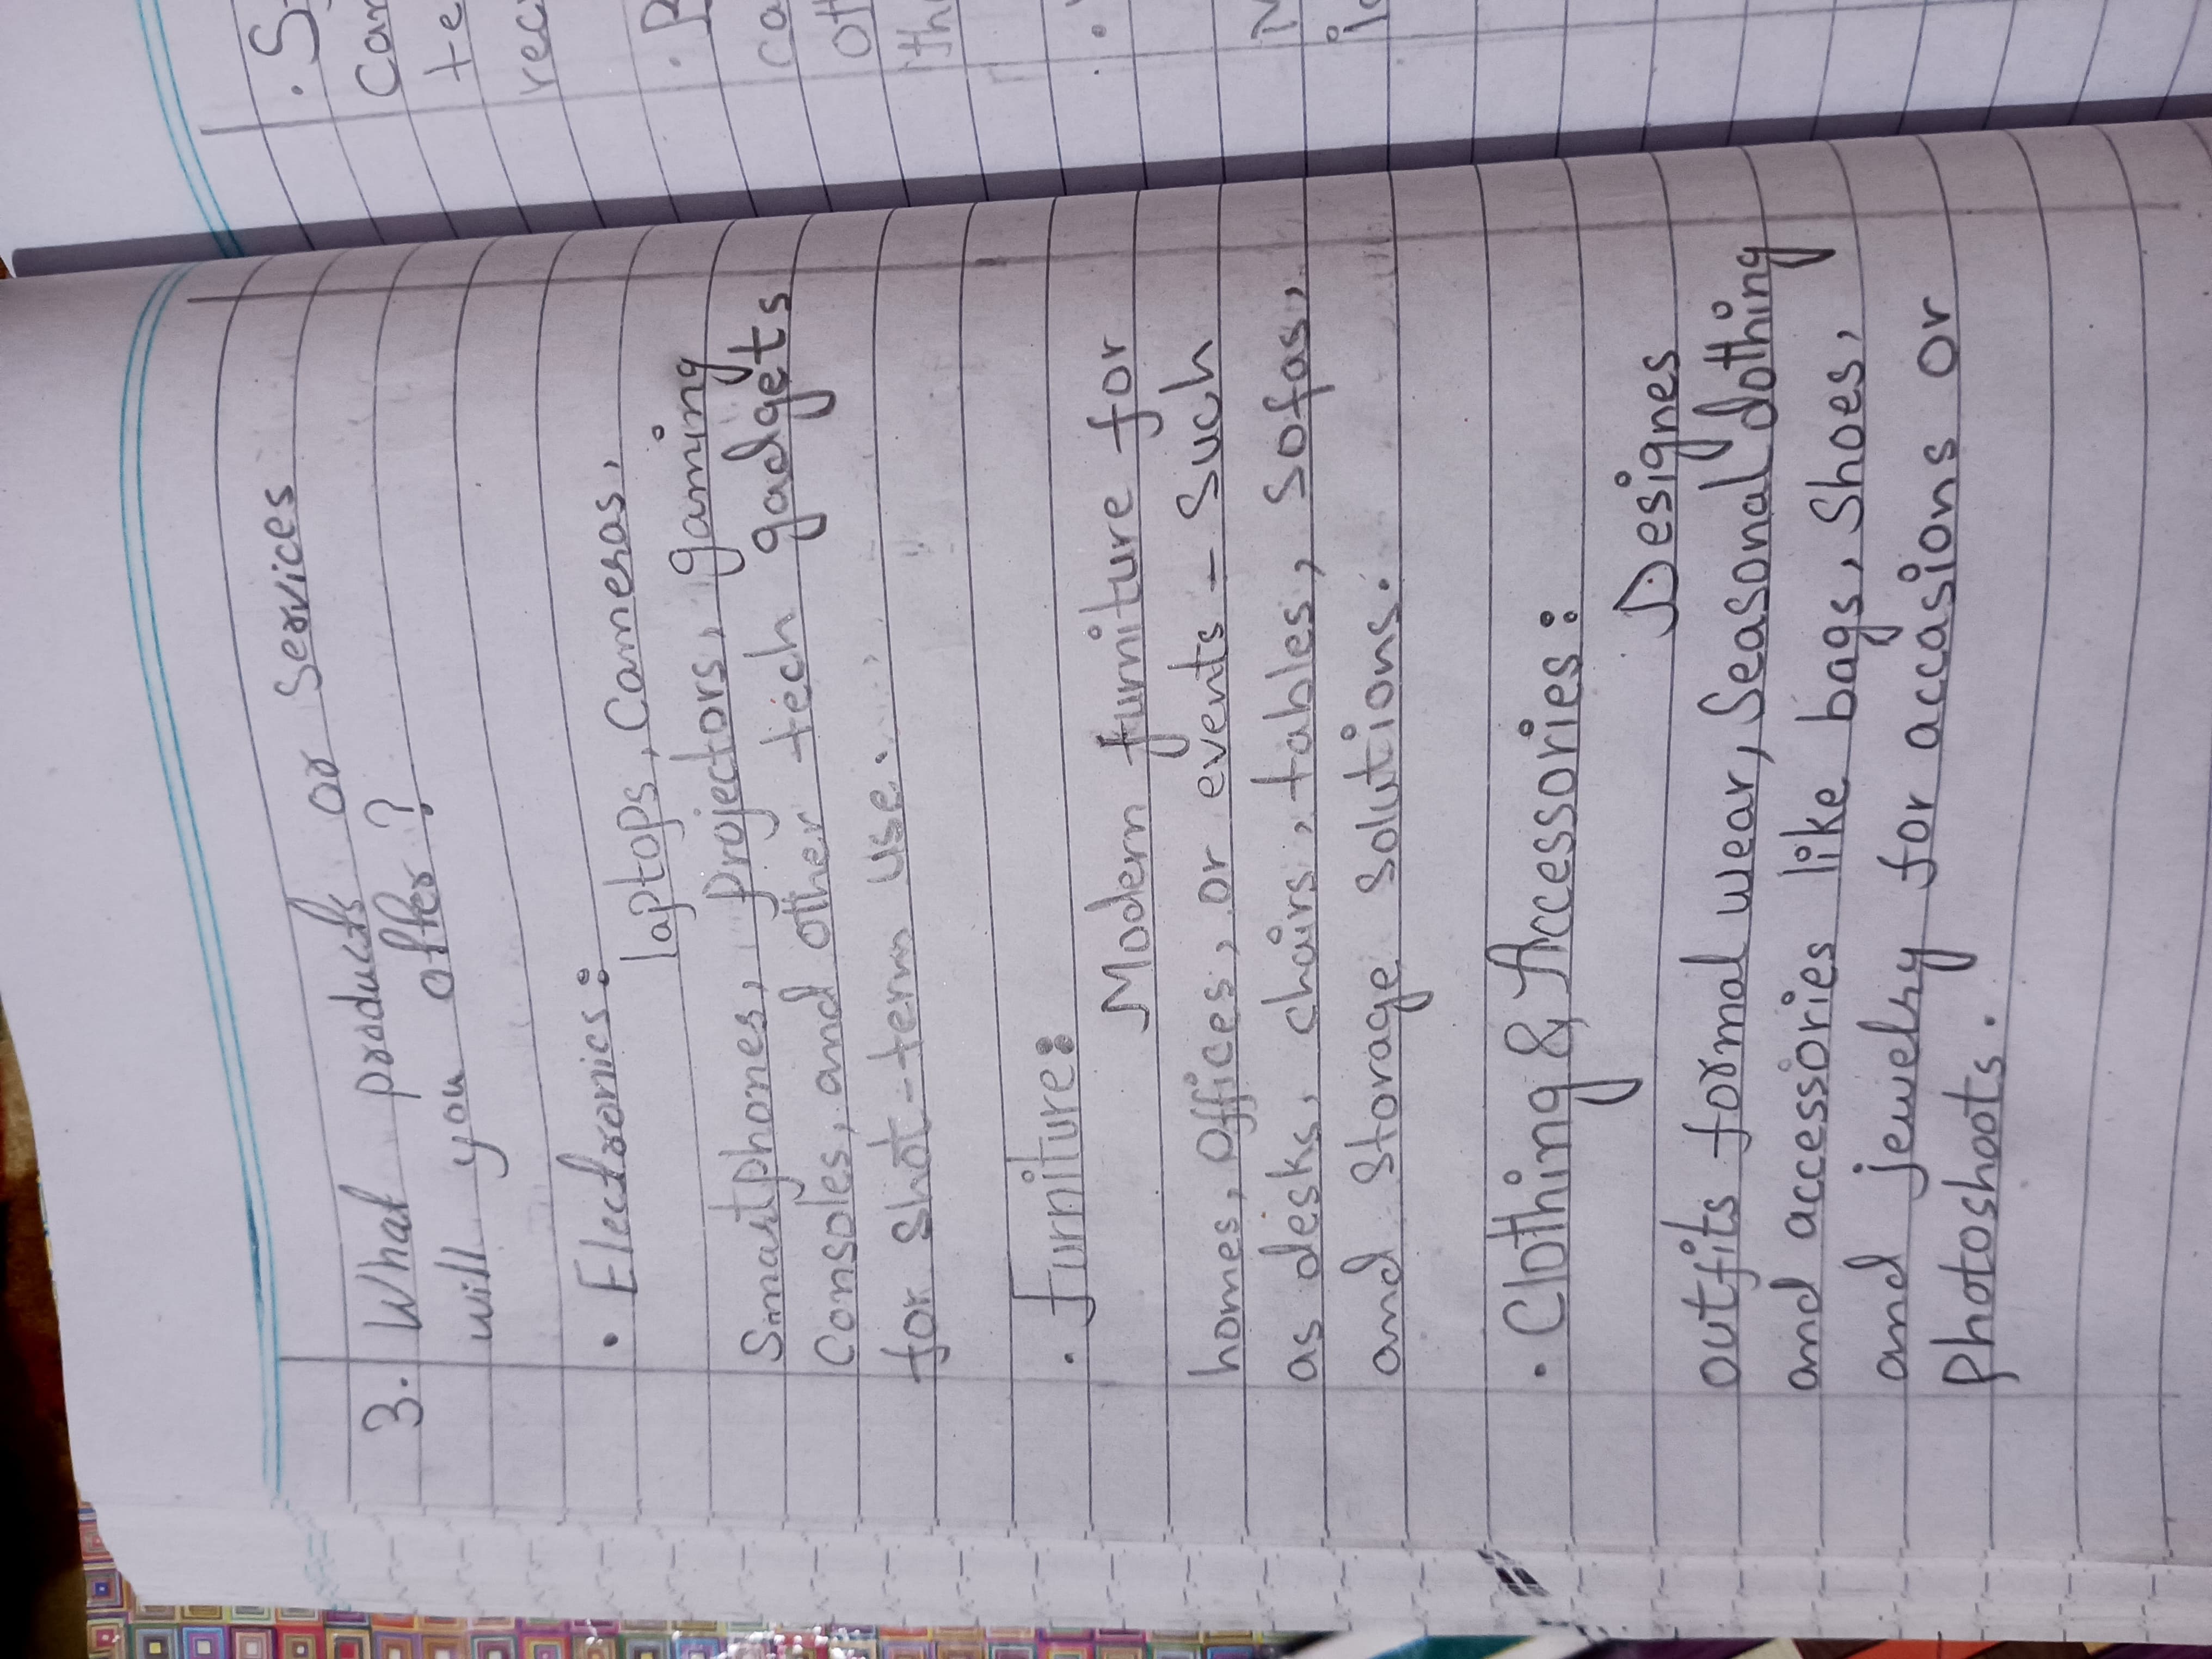 3. What products or Services
will you offer?
• Electronics:
laptops, Cameras,
Smartphones, projectors, gaming
Consoles, and other tech gadgets
for shot-term use.
• Furniture:
Modern furniture for
homes, offices, or events - Such
as desks, chairs, tables, Sofas,
and storage solutions.
• Clothing & Accessories:
Designes
outfits formal wear, Seasonal clothing
and accessories like bags, Shoes,
and jewelry for accasions or
photoshoots.